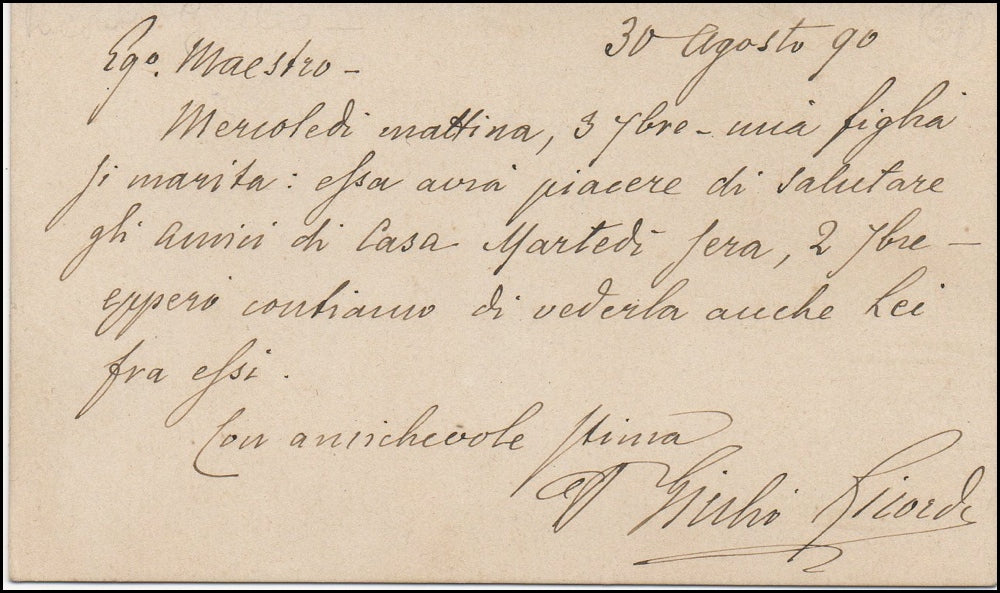 30 Agosto 90
Ego. Maestro -
Mercoledì mattina, 3 7bre - mia figlia
si marita: essa avrà piacere di salutare
gli amici di casa Martedì sera, 2 7bre -
epperò contiamo di vederla anche Lei
fra essi.
Con amichevole stima
Giulio Ricordi